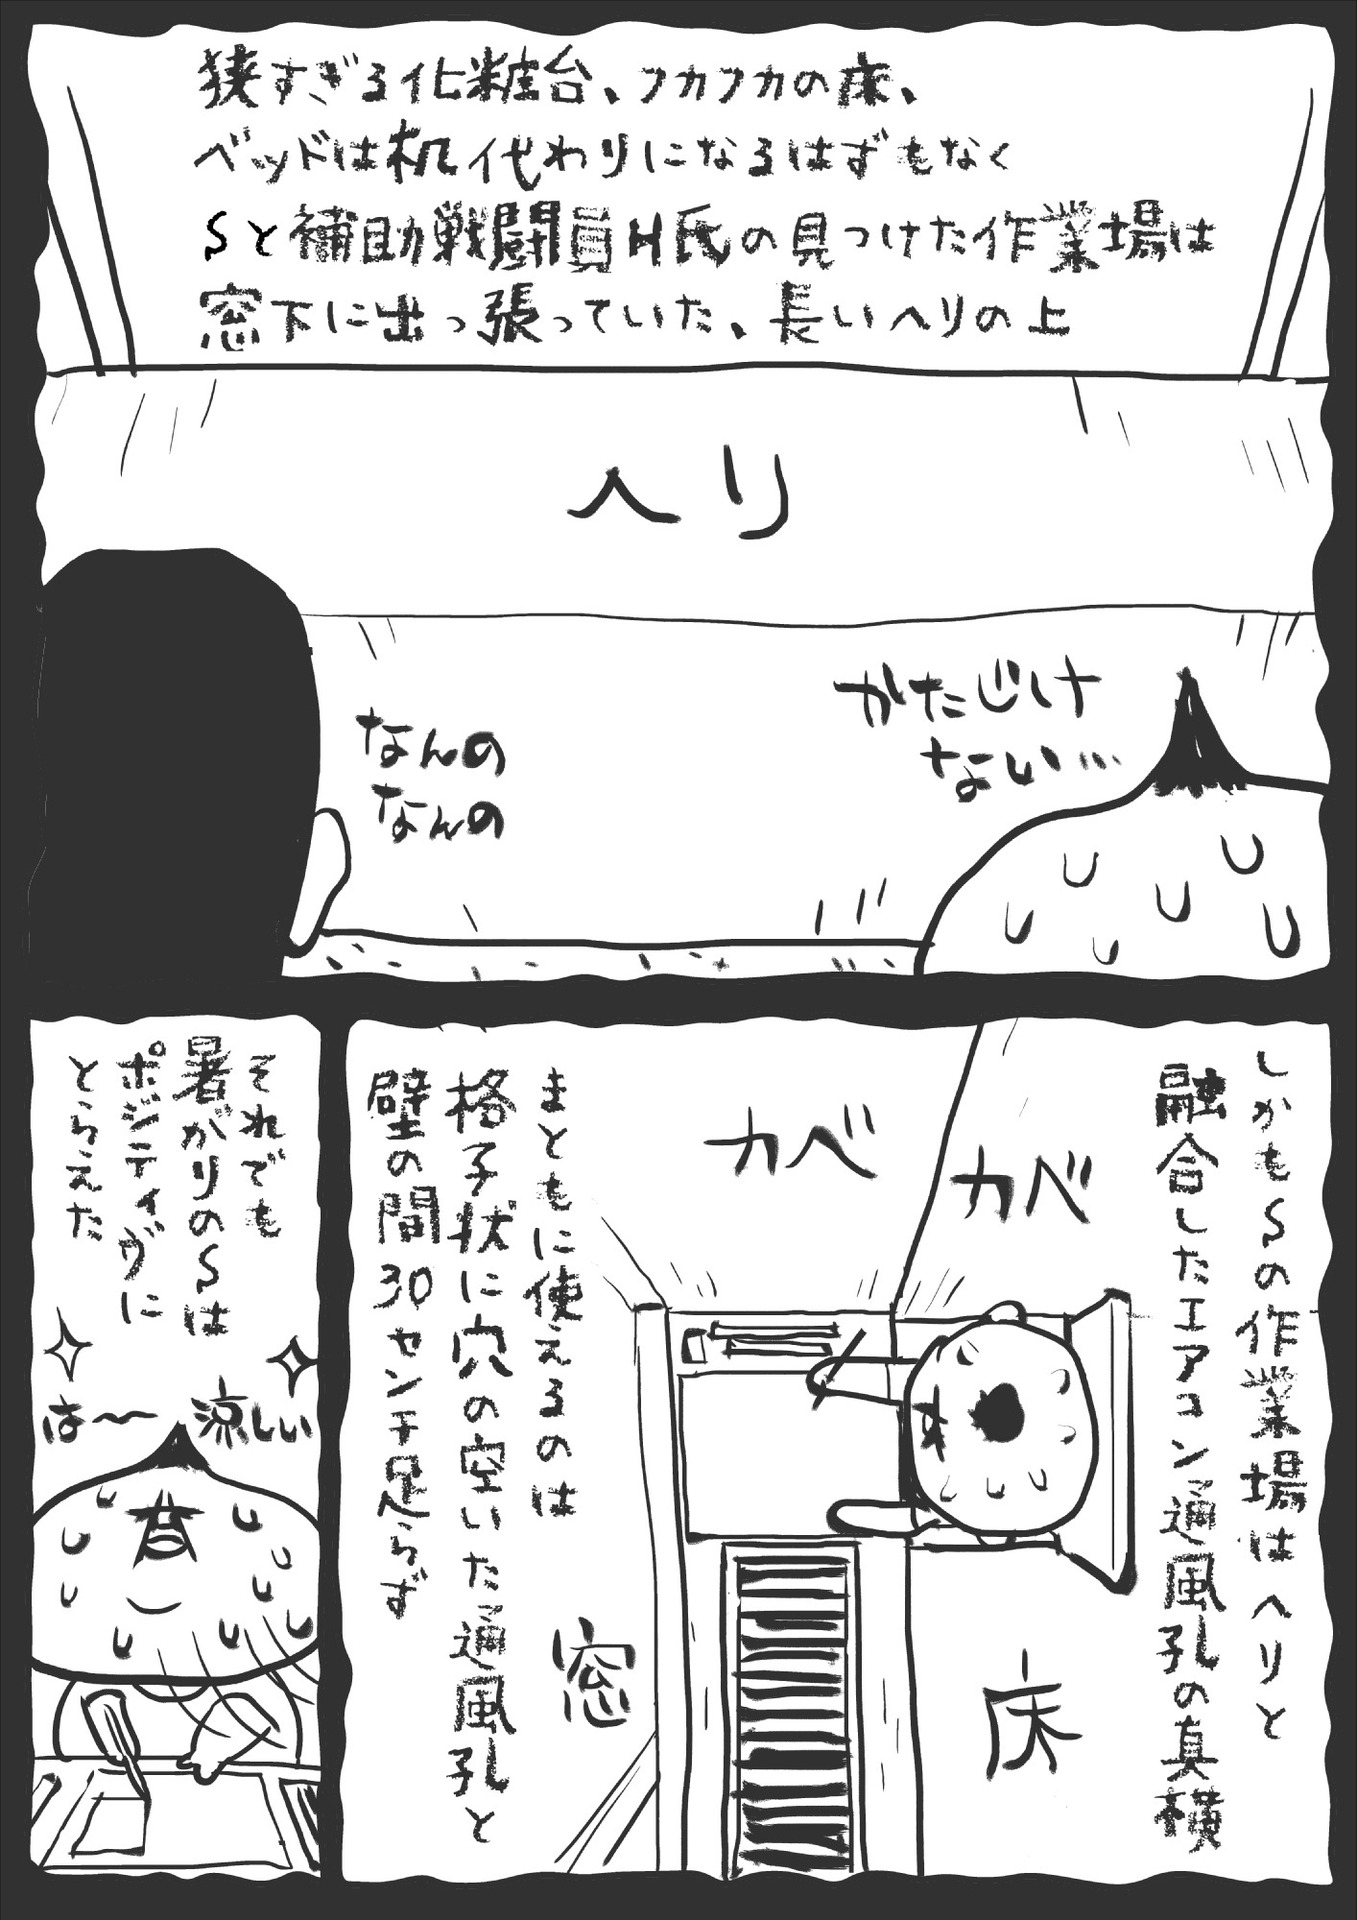 狭すぎる化粧台、フカフカの床、
ベッドは机代わりになるはずもなく
Sと補助戦闘員H氏の見つけた作業場は
窓下に出っ張っていた、長いヘリの上
ヘリ
かたじけ
ない…
なんの
なんの
しかもSの作業場はヘリと
融合したエアコン通風孔の真横
カベ
カベ
床
窓
まともに使えるのは
格子状に穴の空いた通風孔と
壁の間30センチ足らず
それでも
暑がりのSは
ポジティヴに
とらえた
は〜涼しい